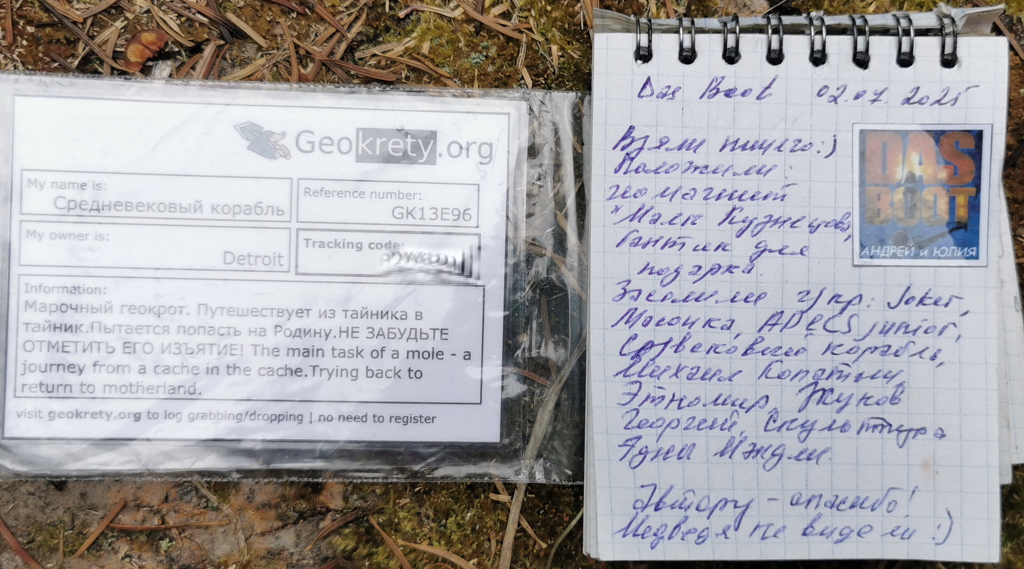 Geokrety.org
My name is:
Средневековый корабль
Reference number:
GK13E96
My owner is:
Detroit
Tracking code:
Information:
Марочный геокрот. Путешествует из тайника в
тайник.Пытается попасть на Родину.НЕ ЗАБУДЬТЕ
ОТМЕТИТЬ ЕГО ИЗЪЯТИЕ! The main task of a mole - a
journey from a cache in the cache.Trying back to
return to motherland.
visit geokrety.org to log grabbing/dropping | no need to register
Das Boot 02.07.2025
Взяли ничего:)
Положили:
геомагнит
"Маяк Кузнецова,
бантик для
подарка.
г/кр: Joker,
корабль,
Михаил
Этномир, Жуков
Георгий, Скульптура
Автору - спасибо!
Медведя не видели :)
DAS
BOOT
АНДРЕЙ и ЮЛИЯ